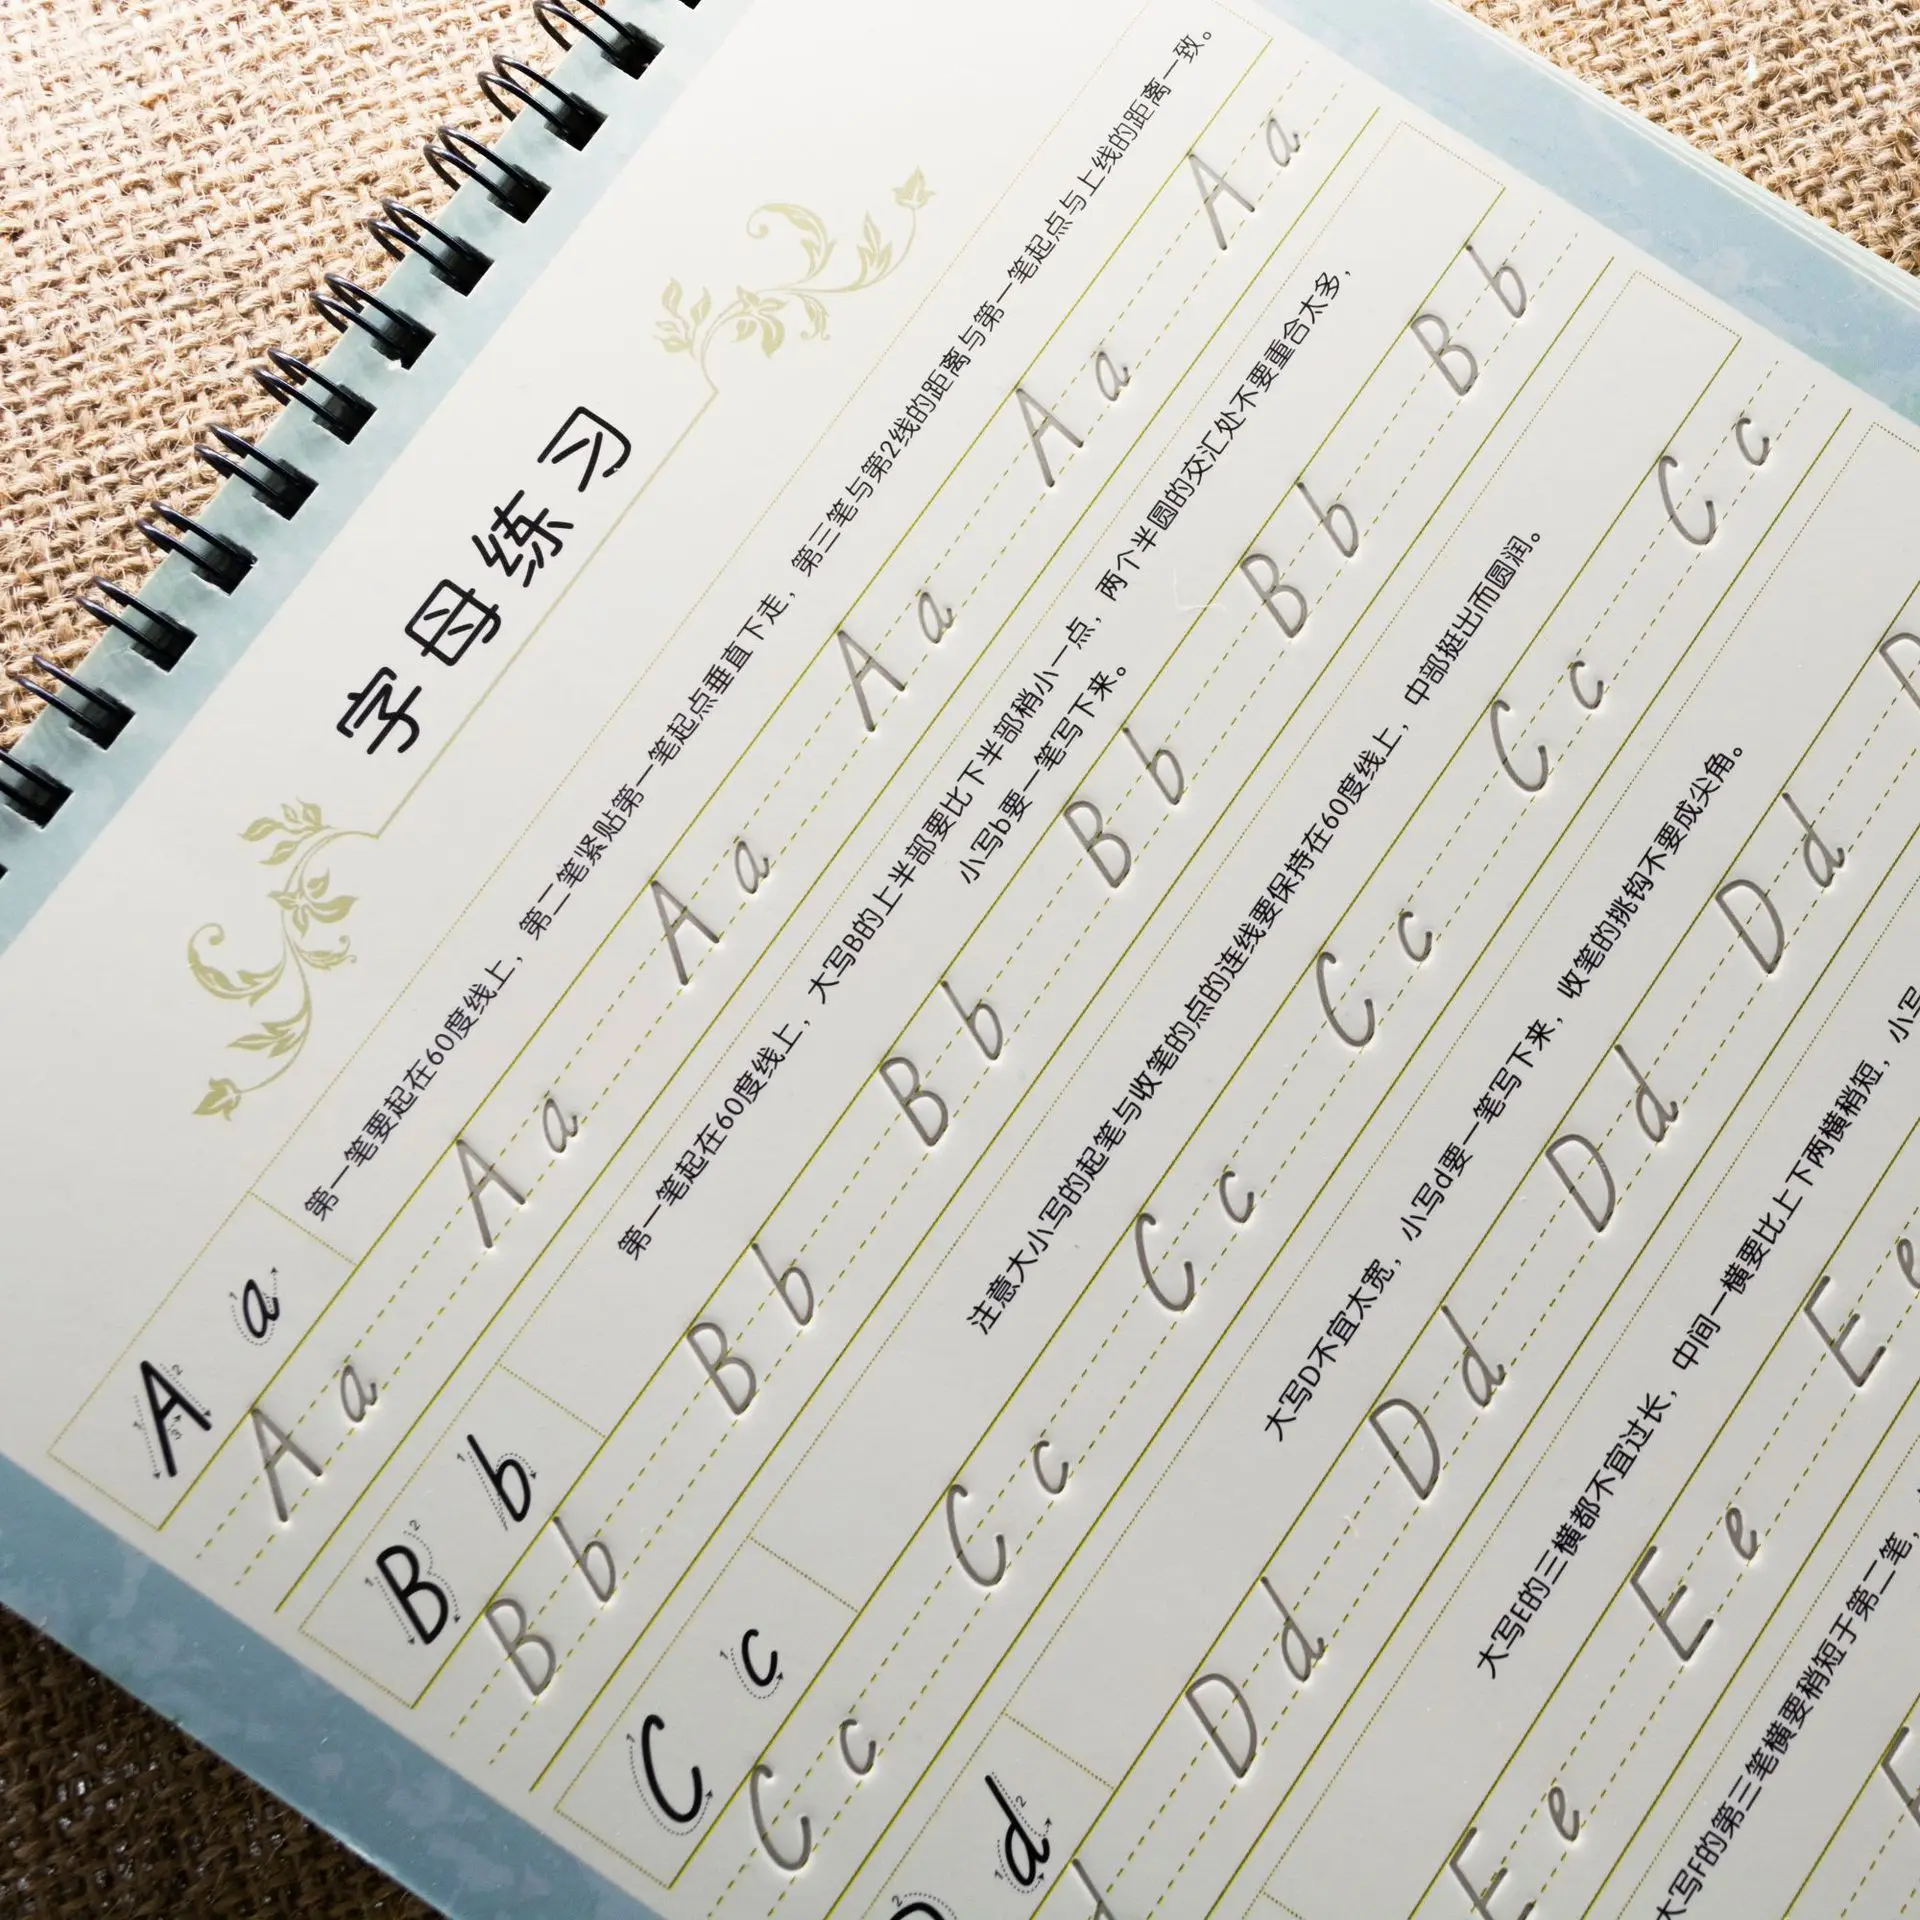 字母练习
A a
第一笔要起在60度线上，第二笔紧贴第一笔起点垂直下走，第三笔与第2线的距离与第一笔起点与上线的距离一致。
A a A a A a A a A a A a
B b
第一笔起在60度线上，大写B的上半部要比下半部稍小一点，两个半圆的交汇处不要重合太多，
小写b要一笔写下来。
B b B b B b B b B b B b
C c
注意大小写的起笔与收笔的点的连线要保持在60度线上，中部挺出而圆润。
C c C c C c C c C c C c
d
大写D不宜太宽，小写d要一笔写下来，收笔的挑钩不要成尖角。
d D d D d D d D d D
大写E的三横都不宜过长，中间一横要比上下两横稍短，小写
E e E e E e
大写F的第三笔横要稍短于第二笔，